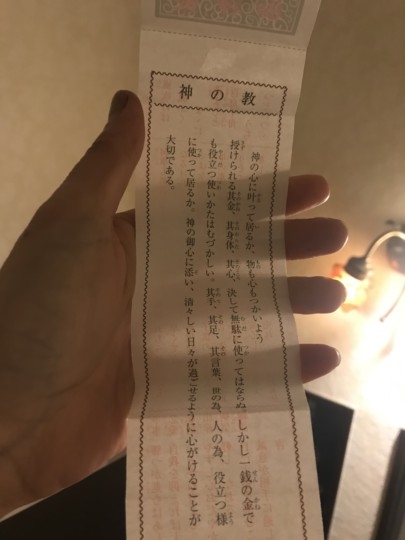 神の教
神の心に叶って居るか、物も心もつかいよう
授けられる其金、其身体、其心、決して無駄に使ってはならぬ。しかし一銭の金で
も役立つ使いかたはむづかしい。其手、其足、其言葉、世の為、人の為、役立つ様
に使って居るか。神の御心に添い、清々しい日々が過ごせるように心がけることが
大切である。